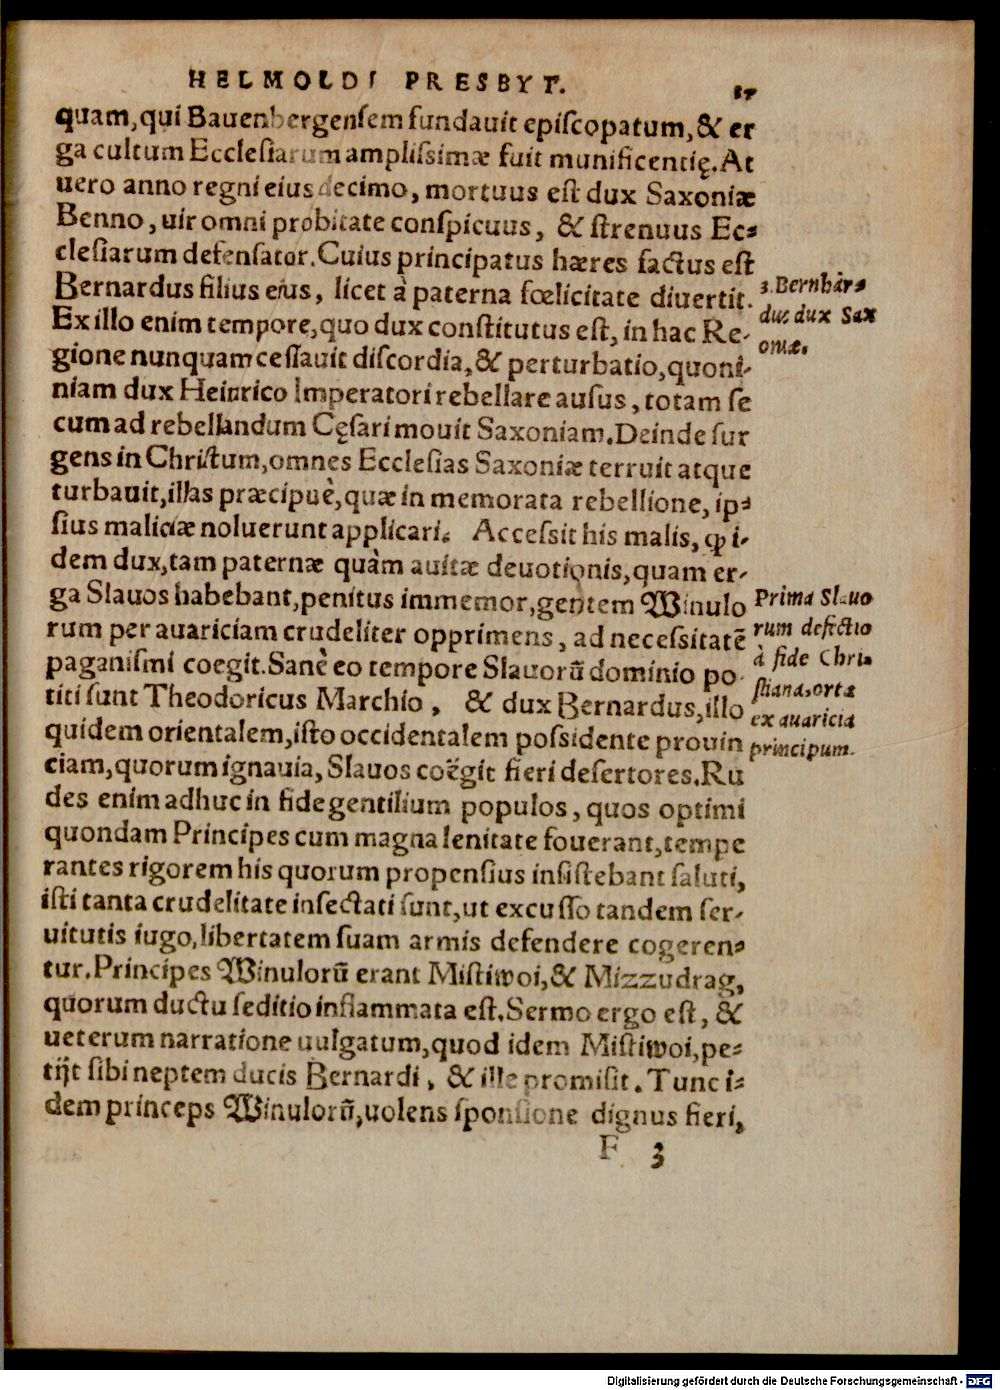 HELMOLDI PRESBYT.
quam, qui Bauenbergensem fundauit episcopatum, & er
ga cultum Ecclesiarum amplissimæ fuit munificentię. At
uero anno regni eius decimo, mortuus est dux Saxoniæ
Benno, uir omni probitate conspicuus, & strenuus Ec-
clesiarum defensator. Cuius principatus hæres factus est
Bernardus filius eius, licet à paterna fœlicitate diuertit.
3. Bernhar-
dus dux Sax
oniæ.
Ex illo enim tempore, quo dux constitutus est, in hac Re-
gione nunquam cessauit discordia, & perturbatio, quoni-
niam dux Heinrico Imperatori rebellare ausus, totam se
cum ad rebellandum Cęsari mouit Saxoniam. Deinde sur
gens in Christum, omnes Ecclesias Saxoniæ terruit atque
turbauit, illas præcipuè, quæ in memorata rebellione, ip-
sius maliciæ noluerunt applicari. Accessit his malis, ꝙ i-
dem dux, tam paternæ quàm auitæ deuotionis, quam er-
ga Slauos habebant, penitus immemor, gentem Winulo
rum per auariciam crudeliter opprimens, ad necessitatē
paganismi coegit. Sanè eo tempore Slauorū dominio po-
titi sunt Theodoricus Marchio, & dux Bernardus, illo
quidem orientalem, isto occidentalem possidente prouin
Prima Slauo
rum defectio
à fide Chri-
stiana, orta
ex auaricia
principum.
ciam, quorum ignauia, Slauos coëgit fieri desertores. Ru
des enim adhuc in fide gentilium populos, quos optimi
quondam Principes cum magna lenitate fouerant, tempe
rantes rigorem his quorum propensius insistebant saluti,
isti tanta crudelitate insectati sunt, ut excusso tandem ser-
uitutis iugo, libertatem suam armis defendere cogeren-
tur. Principes Winulorū erant Mistiwoi, & Mizzudrag,
quorum ductu seditio inflammata est. Sermo ergo est, &
ueterum narratione uulgatum, quod idem Mistiwoi, pe-
tijt sibi neptem ducis Bernardi, & ille promisit. Tunc i-
dem princeps Winulorū, uolens sponsione dignus fieri,
F 3
Digitalisierung gefördert durch die Deutsche Forschungsgemeinschaft - DFG